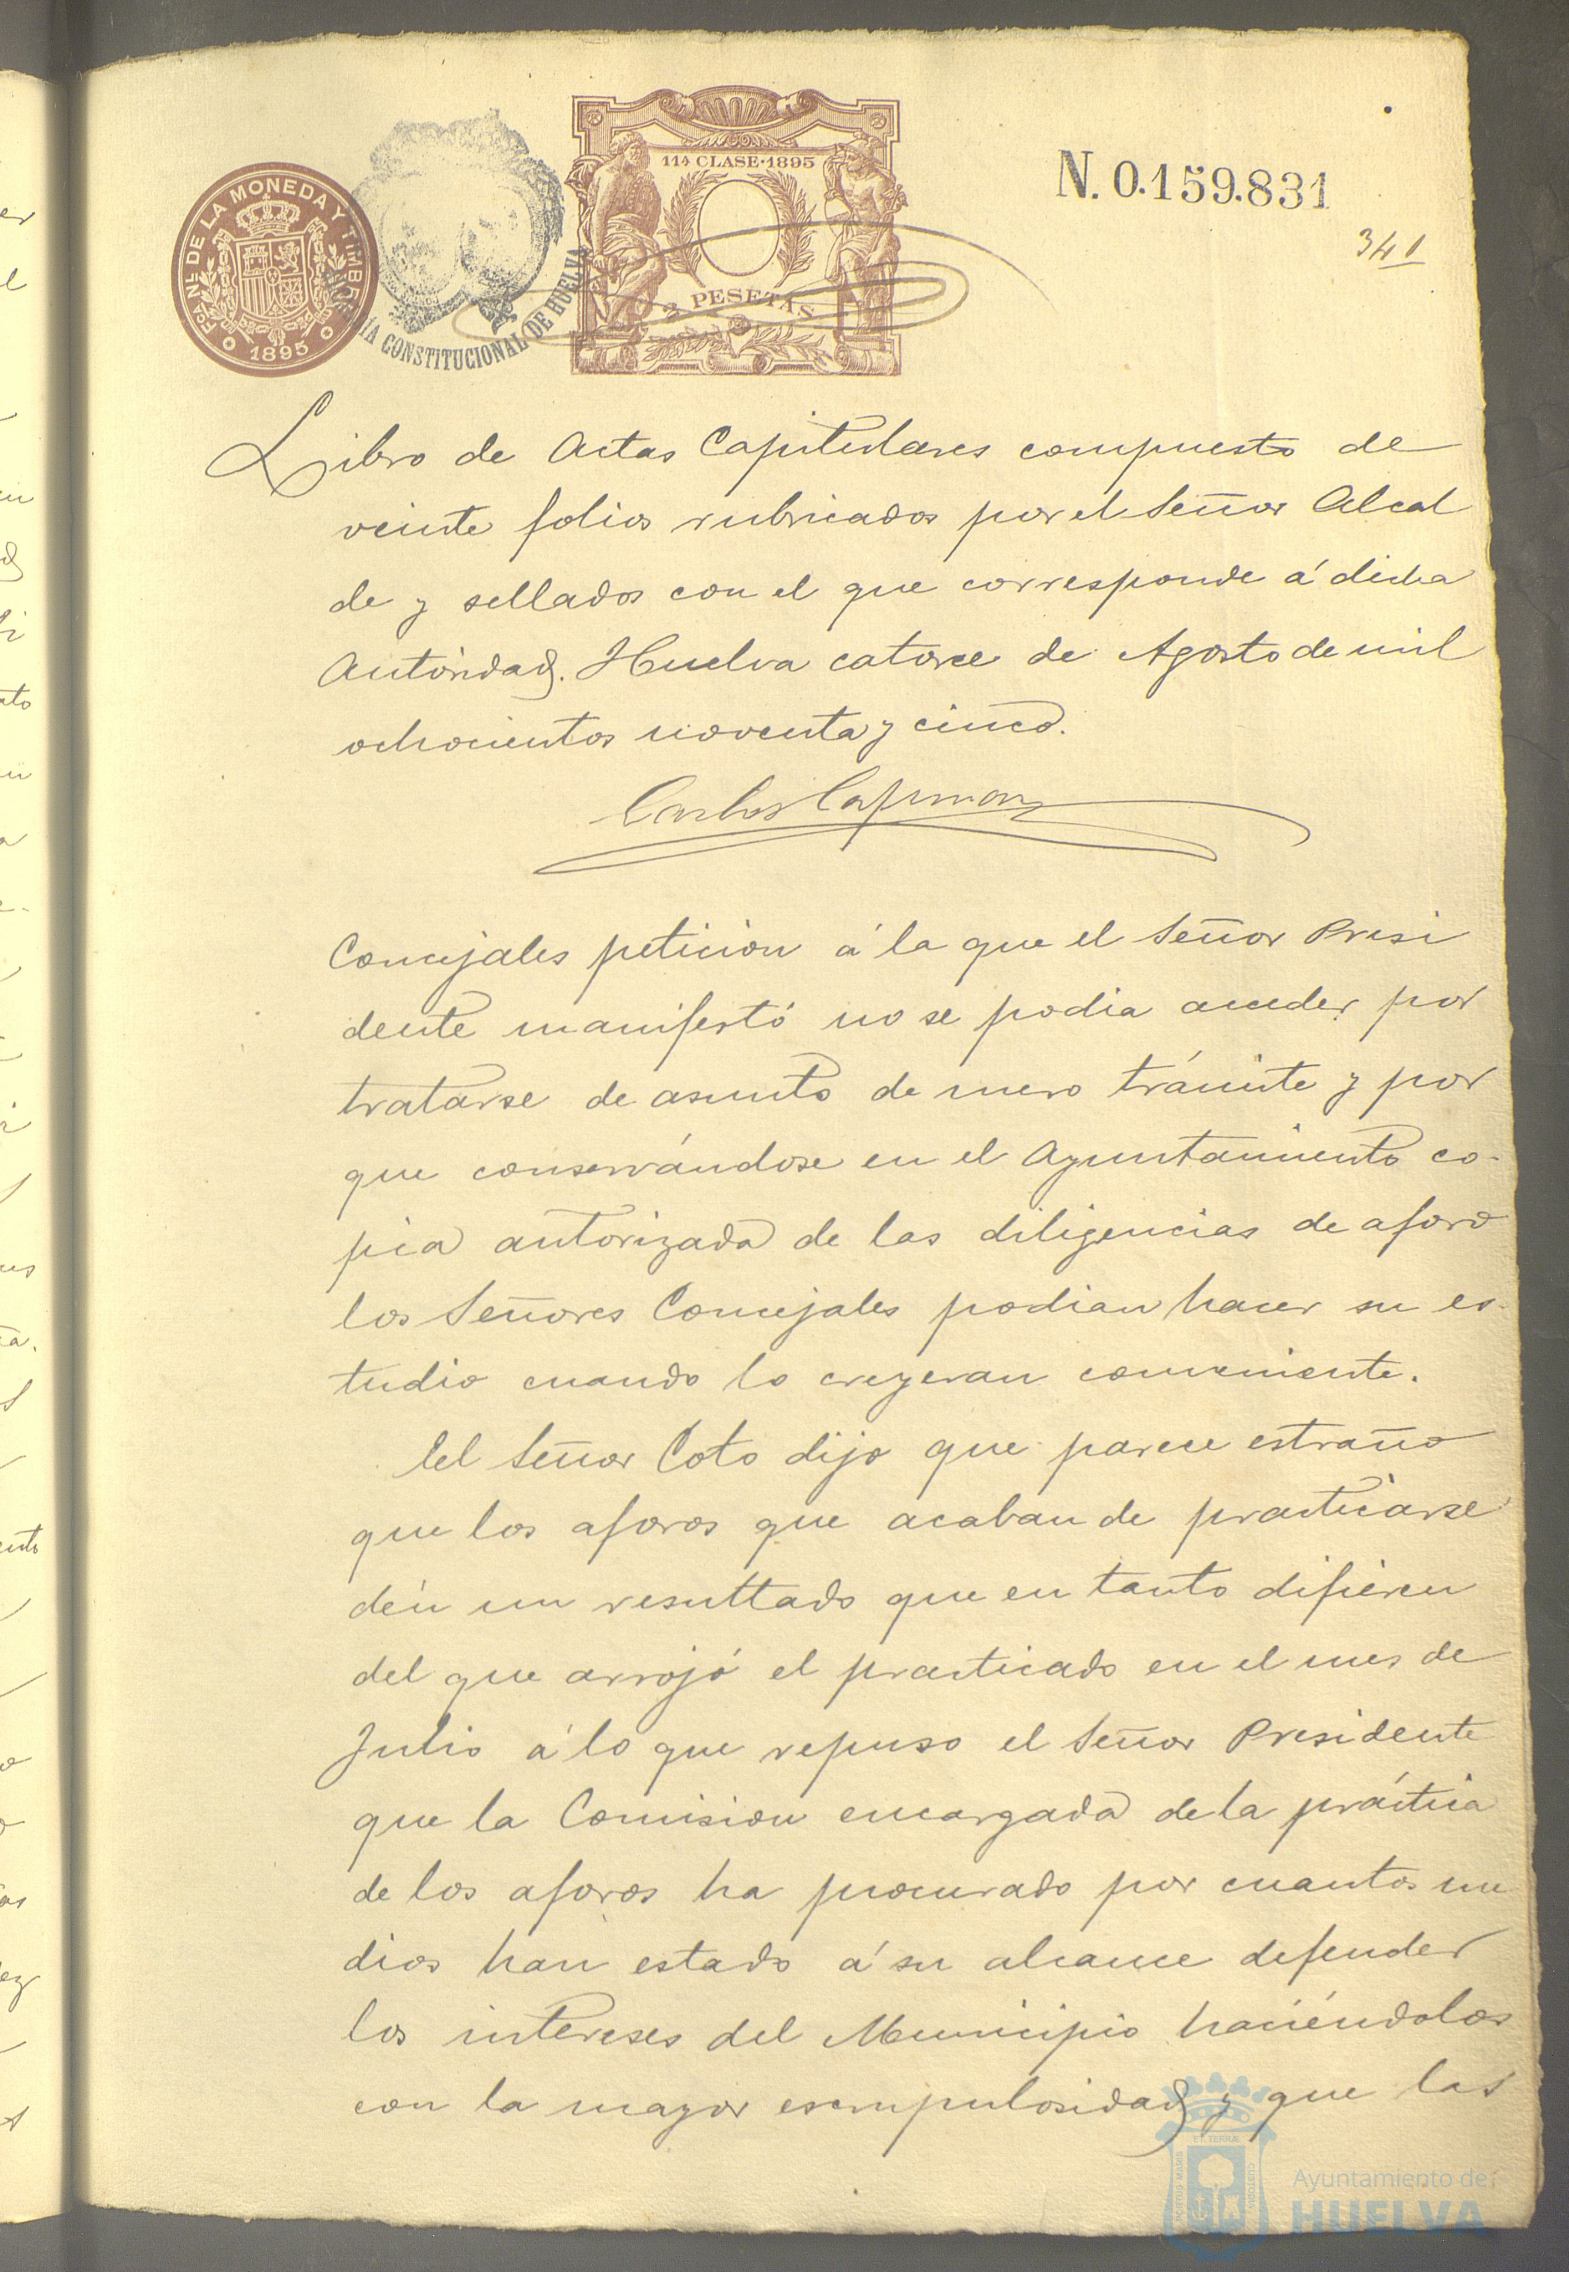 FCA. NAL. DE LA MONEDA Y TIMBRE
1895
ALCALDÍA CONSTITUCIONAL DE HUELVA
11ª CLASE·1895
2 PESETAS
N. 0.159.831
341
Libro de Actas Capitulares compuesto de
veinte folios rubricados por el Señor Alcal
de y sellados con el que corresponde á dicha
Autoridad. Huelva catorce de Agosto de mil
ochocientos noventa y cinco.
Carlos
Concejales peticion á la que el Señor Presi
dente manifestó no se podia acceder por
tratarse de asunto de mero trámite y por
que conservándose en el Ayuntamiento co-
pia autorizada de las diligencias de aforo
los Señores Concejales podian hacer su es-
tudio cuando lo creyeran conveniente.
El Señor Coto dijo que parece estraño
que los aforos que acaban de practicarse
dén un resultado que en tanto difieren
del que arrojó el practicado en el mes de
Julio á lo que repuso el Señor Presidente
que la Comision encargada de la práctica
de los aforos ha procurado por cuantos me
dios han estado á su alcance defender
los intereses del Municipio haciéndolos
con la mayor escrupulosidad y que las
Ayuntamiento de
HUELVA